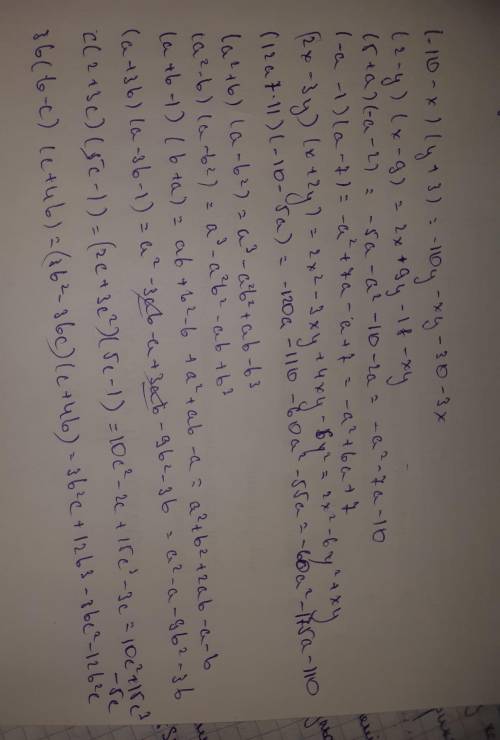 (-110-x)(y+3) = -110y-xy-30-3x
(2-y)(x-9) = 2x+9y-18-xy
(5+a)(-a-2) = -5a-a²-10-2a = -a²-7a-10
(-a-1)(a-7) = -a²+7a-a+7 = -a²+6a+7
(2x-3y)(x+2y) = 2x²-3xy+4xy-6y² = 2x²-6y²+xy
(12a+11)(-10-5a) = -120a-110-60a²-55a = -60a²-175a-110
(a²+b)(a-b²) = a³-a²b²+ab-b³
(a²-b)(a-b²) = a³-a²b²-ab+b³
(a+b-1)(b+a) = ab+b²-b+a²+ab-a = a²+b²+2ab-a-b
(a+3b)(a-3b-1) = a²-3ab-a+3ab-9b²-3b = a²-a-9b²-3b
c(2+3c)(5c-1) = (2c+3c²)(5c-1) = 10c²-2c+15c³-3c = 10c²+15c³
-5c
3b(b-c)(c+4b) = (3b²-3bc)(c+4b) = 3b²c+12b³-3bc²-12b²c